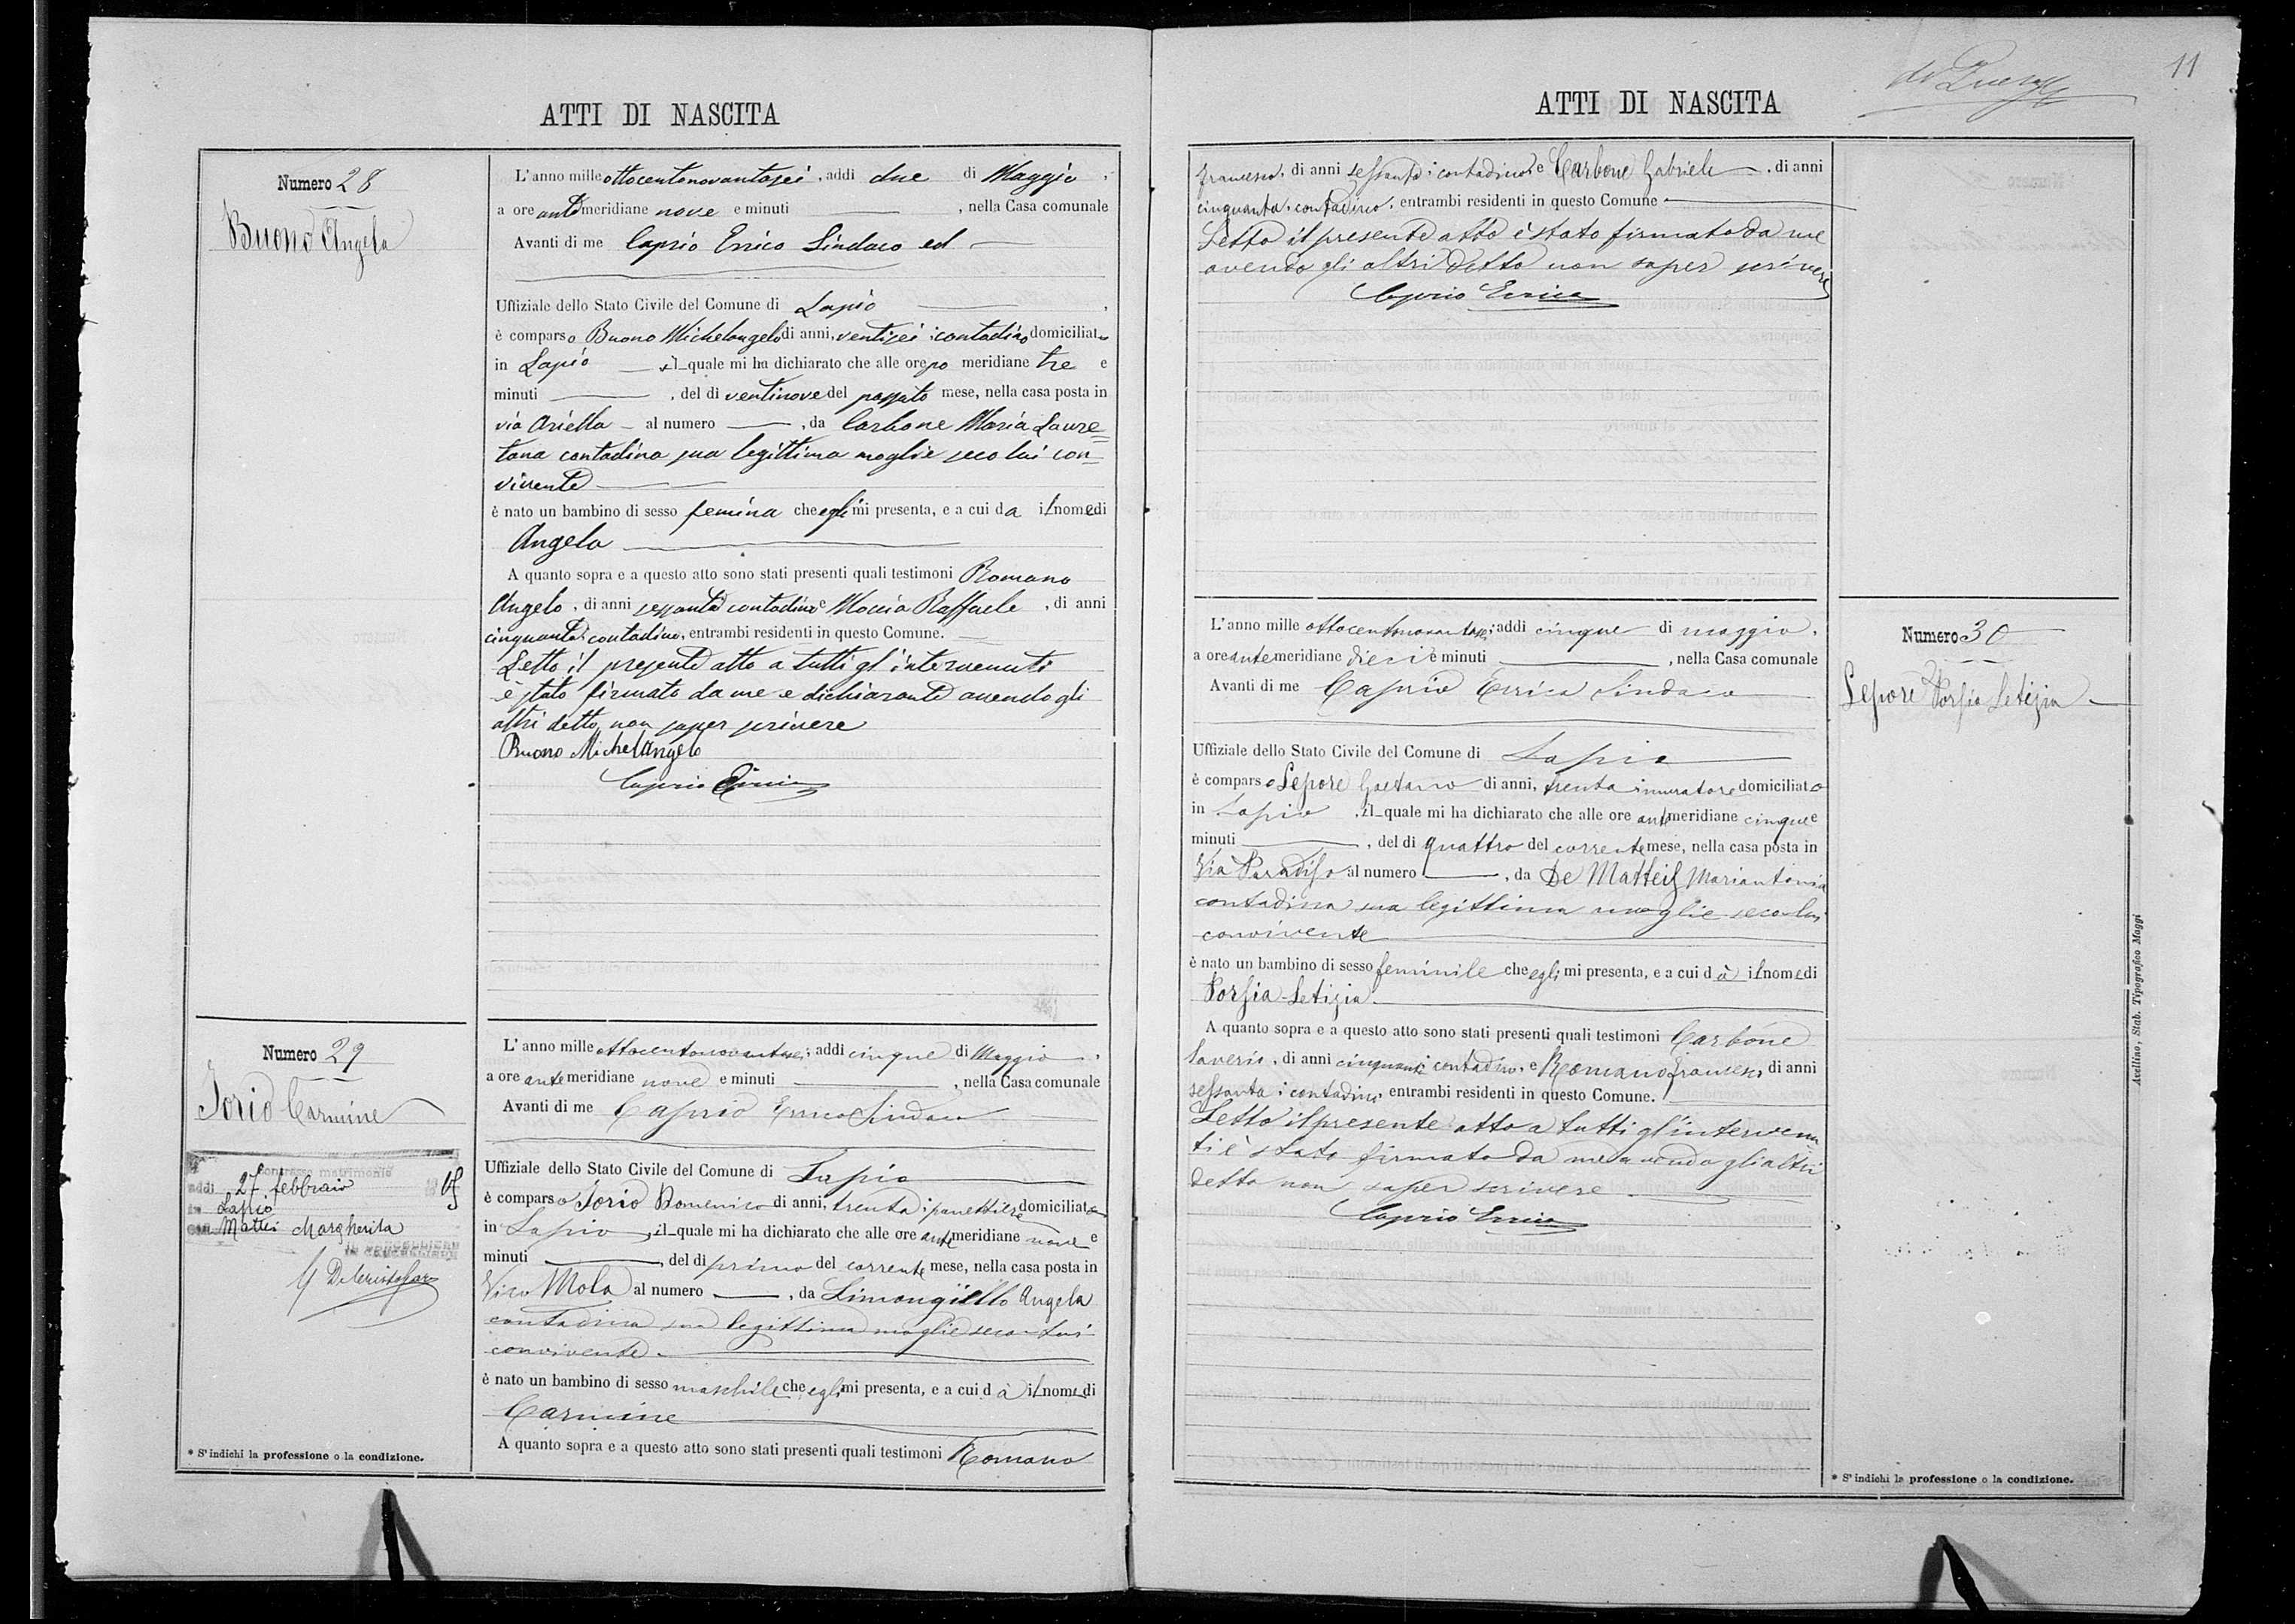 ATTI DI NASCITA
Numero 28
Buono Angela
L'anno mille ottocentonovantasei, addì due di Maggio,
a ore antimeridiane nove e minuti , nella Casa comunale
Avanti di me Caprio Errico Sindaco ed
Uffiziale dello Stato Civile del Comune di Lapio,
è comparso Buono Michelangelo di anni, ventisei contadino domiciliato
in Lapio il quale mi ha dichiarato che alle ore po meridiane tre e
minuti , del dì ventinove del passato mese, nella casa posta in
via Ariella al numero , da Carbone Maria Laure=
tana contadina sua legittima moglie seco lui con=
vivente
è nato un bambino di sesso femina che egli mi presenta, e a cui da il nome di
Angela
A quanto sopra e a questo atto sono stati presenti quali testimoni Romano
Angelo, di anni sessanta contadino e Moccia Raffaele, di anni
cinquanta contadino, entrambi residenti in questo Comune.
Letto il presente atto a tutti gl'intervenuti
è stato firmato da me e dichiarante avendo gli
altri detto non saper scrivere
Buono Michelangelo
Caprio Errico
Numero 29
Iorio Carmine
contrasse matrimonio
addì 27 febbraio
in Lapio
con Mattei Margherita
L'anno mille ottocentonovantasei, addì cinque di Maggio,
a ore antemeridiane nove e minuti , nella Casa comunale
Avanti di me Caprio Errico Sindaco
Uffiziale dello Stato Civile del Comune di Lapio
è comparso Iorio Domenico di anni, trenta panettiere domiciliato
in Lapio, il quale mi ha dichiarato che alle ore antemeridiane nove e
minuti , del dì primo del corrente mese, nella casa posta in
Vico Mola al numero , da Limongiello Angela
contadina sua legittima moglie seco lui
convivente
è nato un bambino di sesso maschile che egli mi presenta, e a cui dà il nome di
Carmine
A quanto sopra e a questo atto sono stati presenti quali testimoni Romano
* S'indichi la professione o la condizione.
11
ATTI DI NASCITA
Francesco, di anni sessanta contadino e Carbone Gabriele, di anni
cinquanta, contadino, entrambi residenti in questo Comune
Letto il presente atto è stato firmato da me
avendo gli altri detto non saper scrivere
Caprio Errico
Numero 30
Lepore Porsia Letizia
L'anno mille ottocentonovantasei, addì cinque di maggio,
a ore antemeridiane dieci e minuti , nella Casa comunale
Avanti di me Caprio Errico Sindaco
Uffiziale dello Stato Civile del Comune di Lapio
è comparso Lepore Gaetano di anni, trenta muratore domiciliato
in Lapio, il quale mi ha dichiarato che alle ore antemeridiane cinque e
minuti , del dì quattro del corrente mese, nella casa posta in
Via Paradiso al numero , da De Matteis Mariantonia
contadina sua legittima moglie seco lui
convivente
è nato un bambino di sesso feminile che egli mi presenta, e a cui dà il nome di
Porsia Letizia
A quanto sopra e a questo atto sono stati presenti quali testimoni Carbone
Saverio, di anni cinquanta contadino, e Romano Francesco, di anni
sessanta contadino, entrambi residenti in questo Comune.
Letto il presente atto a tutti gl'intervenu
ti è stato firmato da me avendo gli altri
detto non saper scrivere
Caprio Errico
* S'indichi la professione o la condizione.
Avellino, Stab. Tipografico Maggi